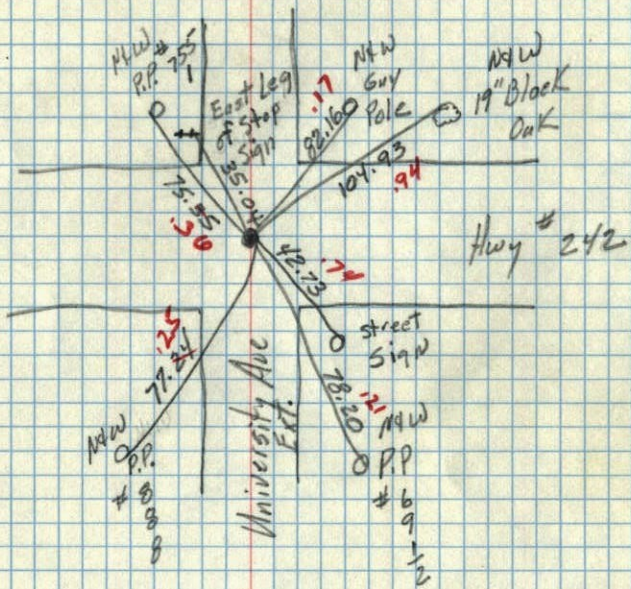 N&W
P.P. # 755
1
East Leg
of Stop
Sign
35.04
75.35
.36
N&W
Guy
Pole
.17
82.16
N&W
19" Black
Oak
104.93
.94
Hwy # 242
42.73
.74
Street
Sign
78.20
.21
N&W
P.P
# 6
9
-1/2
University Ave
EXT.
.25
77.24
N&W
P.P.
# 8
8
8